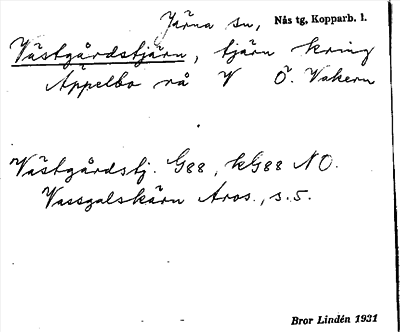 Järna sn, Nås tg, Kopparb. l.
Västgårdstjärn, tjärn kring
Äppelbo rå V Ö. Vakern
Västgårdstj. G88, kG88 NO.
Vassgalskärn Aros., s. 5.
Bror Lindén 1931